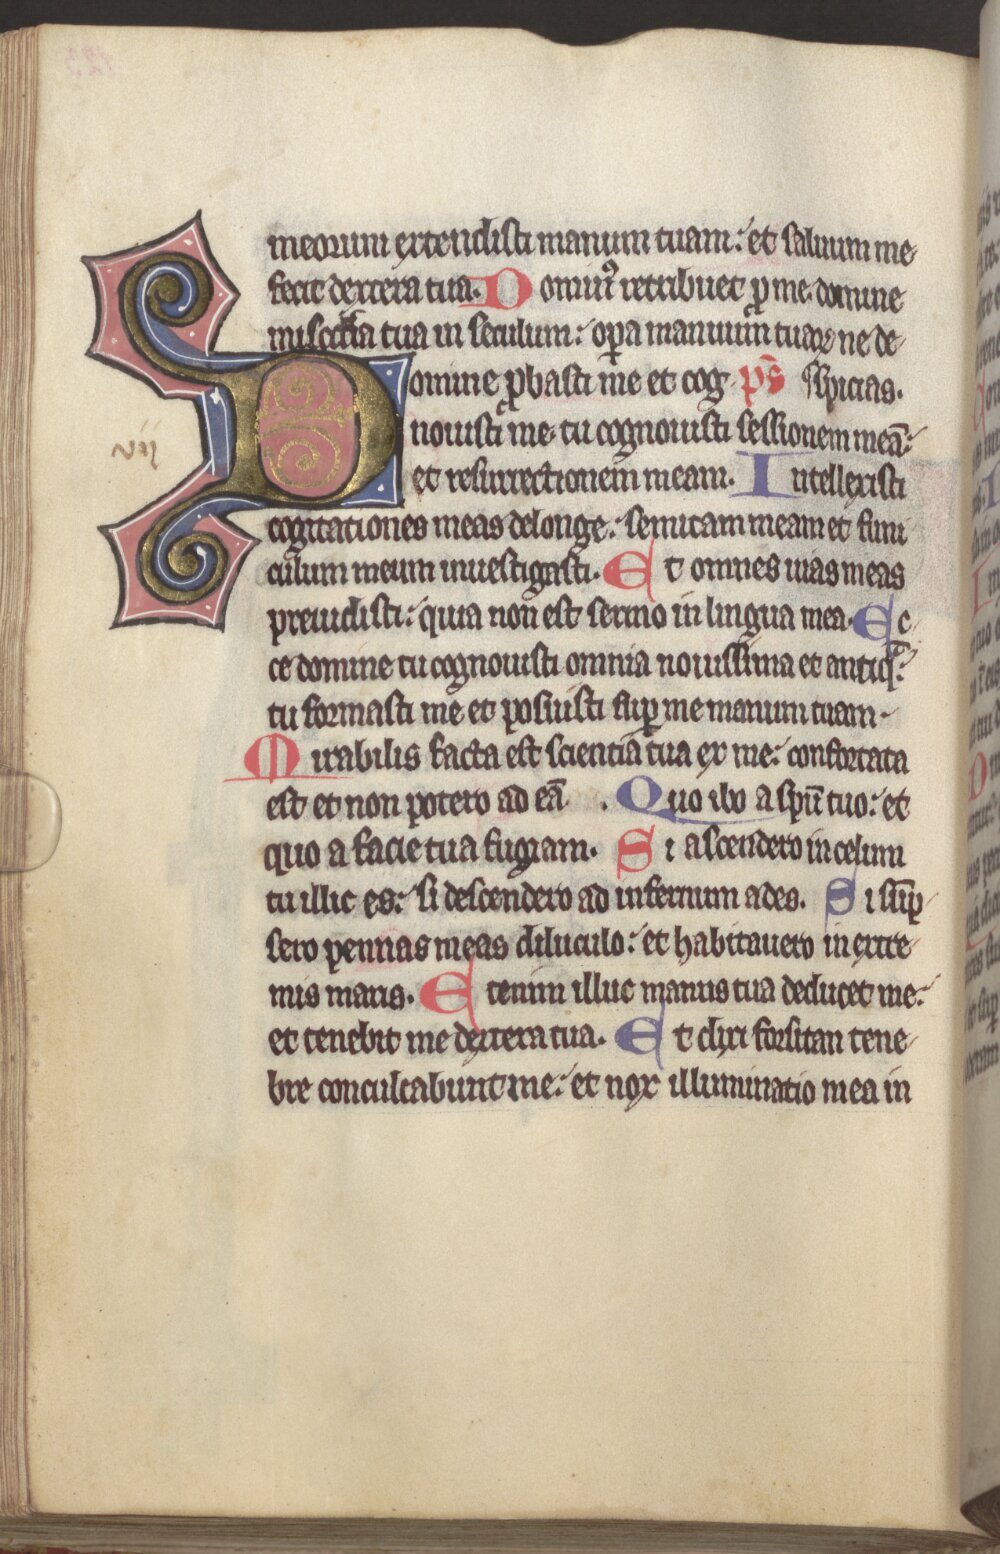 meorum extendisti manum tuam: et saluum me
fecit dextera tua. Domin᷒ retribuet ꝓ me. domine
misc͛dia tua in seculum: oꝑa manuum tuaꝝ ne de-
Domine ꝓbasti me et cog- ps̄ spicias.
nouisti me. tu cognouisti sessionem meā:
et resurrectionem meam. Intellexisti
vij
cogitationes meas delonge: semitam meam et funi
culum meum inuestigasti. Et omnes uias meas
preuidisti: quia non est sermo in lingua mea. Ec-
ce domine tu cognouisti omnia nouissima et antiq̄:
tu formasti me et posuisti suꝑ me manum tuam.
Mirabilis facta est scientia tua ex me: confortata
est et non potero ad eā. Quo ibo a spū tuo: et
quo a facie tua fugiam. Si ascendero in celum
tu illic es: si descendero ad infernum ades. Si sūp-
sero pennas meas diluculo: et habitauero in extre-
mis maris. Etenim illuc manus tua deducet me:
et tenebit me dextera tua. Et dixi forsitan tene-
bre conculcabunt me: et nox illuminatio mea in